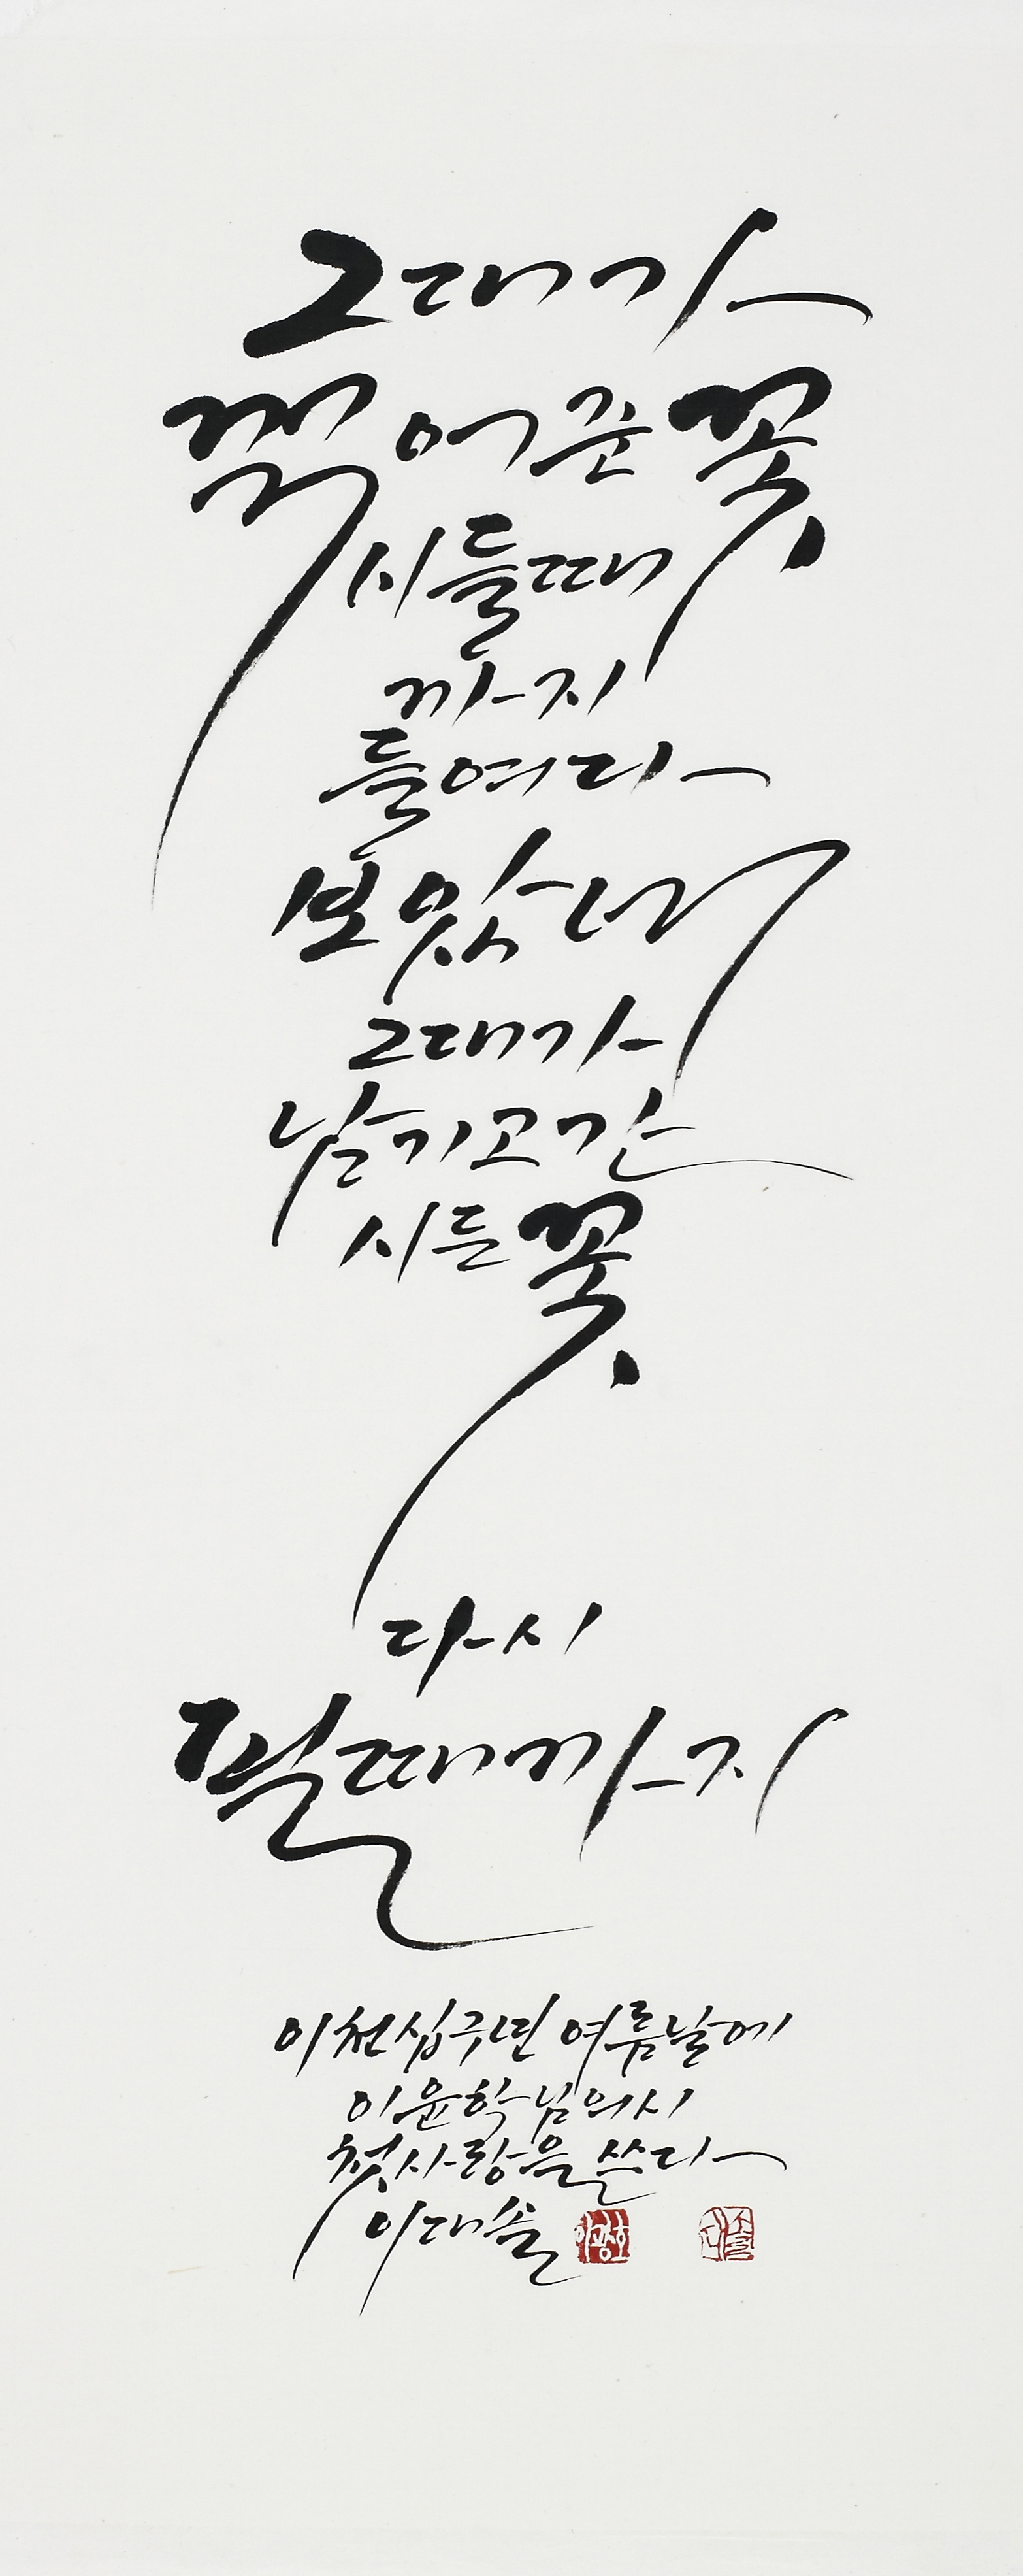 그대가
꺾어준 꽃
시들때
까지
들여다
보았네
그대가
남기고간
시든 꽃
다시
필때까지
이천십구년 여름날에
이윤학님의시
첫사랑을 쓴다
이대솔 이광호